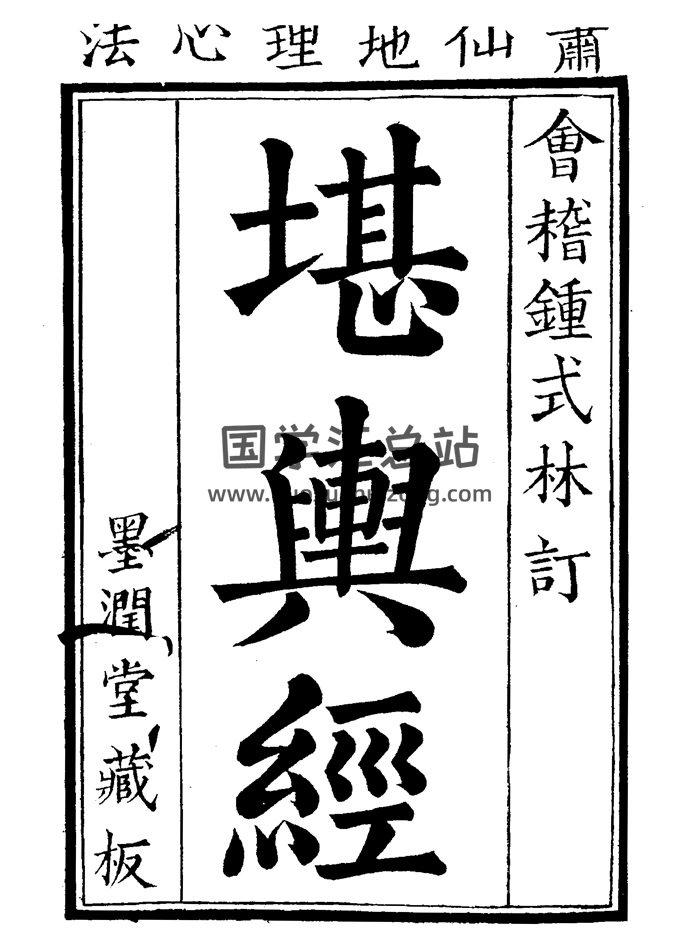 蕭仙地理心法
會稽鍾式林訂
堪輿經
墨潤堂藏板
国学汇总站
www.guoxuehuizong.com